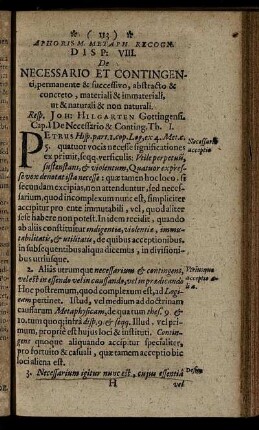 ( 113 )
APHORISM METAPH. RECOGN.
DISP: VIII.
De
NECESSARIO ET CONTINGEN-
ti, permanente & successivo, abstracto &
concreto, materiali & immateriali,
ut & naturali & non naturali.
Resp. JOH: HILGARTEN Gottingensi.
Cap. I De Necessario & Conting. Th. I.
PETRUS Hisp. part. 2. cap.
5. quatuor vocis necesse significationes
ex priut. seqq. versiculis: Velle perpetuū,
sustentans, & violentum, Quatuor expres-
se vox denotat ista necesse: quæ tamen hoc loco, si
secundam excipias, non attenduntur, sed necessa-
rium, quod incomplexum nunc est, simpliciter
accipitur pro ente immutabili, vel, quod aliter
sese habere non potest. In idem recidit, quando
ab aliis constituitur indigentiæ, violentiæ, immu-
tabilitatis, & utilitatis, de quibus acceptionibus,
in subsequentibus aliqua dicemus, in divisioni-
bus utriusque.
Necessarii
acceptio
2. Aliàs utrumque necessarium & contingens,
vel est in essendo vel in causando, vel in prædicando
Hoc postremum, quod commune est, ad Logi-
cam pertinet. Illud, vel medium ad doctrinam
causarum Metaphysicam, de qua tum thes. 9 &
10. tum quoq; infra disp. 9 & seqq. Illud, vel pri-
mum, propriè est hujus loci & instituti. Contin-
gens quoque aliquando accipitur specialiter,
pro fortuito & casuali, quæ tamen acceptio hîc
loci aliena est.
Utriusque
acceptio
3. Necessarium igitur nunc est, cujus essentia
H vel